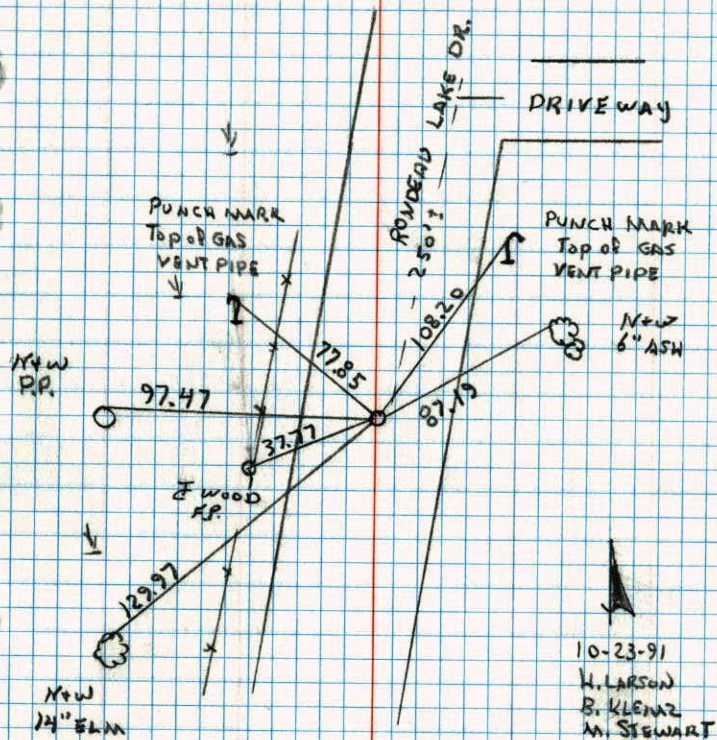 RONDEAU LAKE DR.
250'±
DRIVEWAY
PUNCH MARK
Top of GAS
VENT PIPE
PUNCH MARK
Top of GAS
VENT PIPE
108.20
N+W
6" ASH
77.85
N+W
P.P.
97.47
87.19
37.77
℄ WOOD
F.P.
129.97
N+W
14" ELM
10-23-91
H. LARSON
B. KLEMZ
M. STEWART